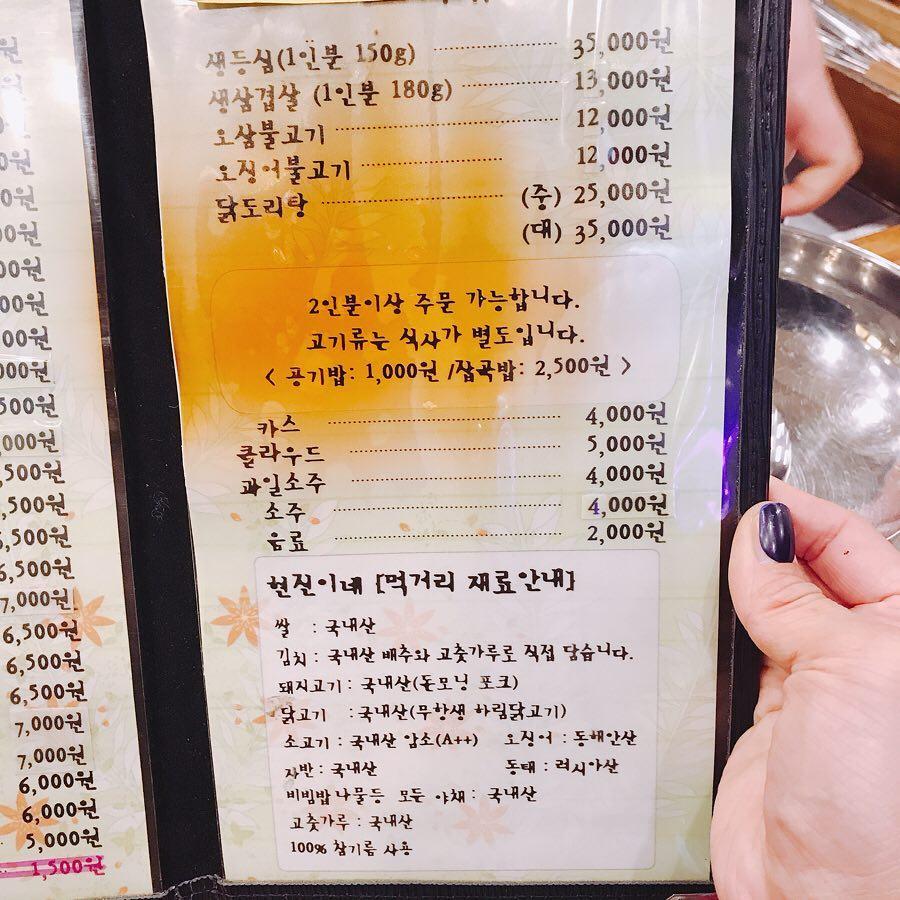 생등심(1인분 150g) 35,000원
생삼겹살 (1인분 180g) 13,000원
오삼불고기 12,000원
오징어불고기 12,000원
닭도리탕 (중) 25,000원
(대) 35,000원
2인분이상 주문 가능합니다.
고기류는 식사가 별도입니다.
< 공기밥: 1,000원 /잡곡밥: 2,500원 >
카스 4,000원
클라우드 5,000원
과일소주 4,000원
소주 4,000원
음료 2,000원
현진이네 [먹거리 재료안내]
쌀 : 국내산
김치 : 국내산 배추와 고춧가루로 직접 담습니다.
돼지고기 : 국내산(돈모닝 포크)
닭고기 : 국내산(무항생 하림닭고기)
소고기 : 국내산 암소(A++) 오징어 : 동해안산
자반 : 국내산 동태 : 러시아산
비빔밥나물등 모든 야채 : 국내산
고춧가루 : 국내산
100% 참기름 사용
7,000원
6,500원
6,500원
6,500원
7,000원
7,000원
6,000원
6,000원
5,000원
1,500원